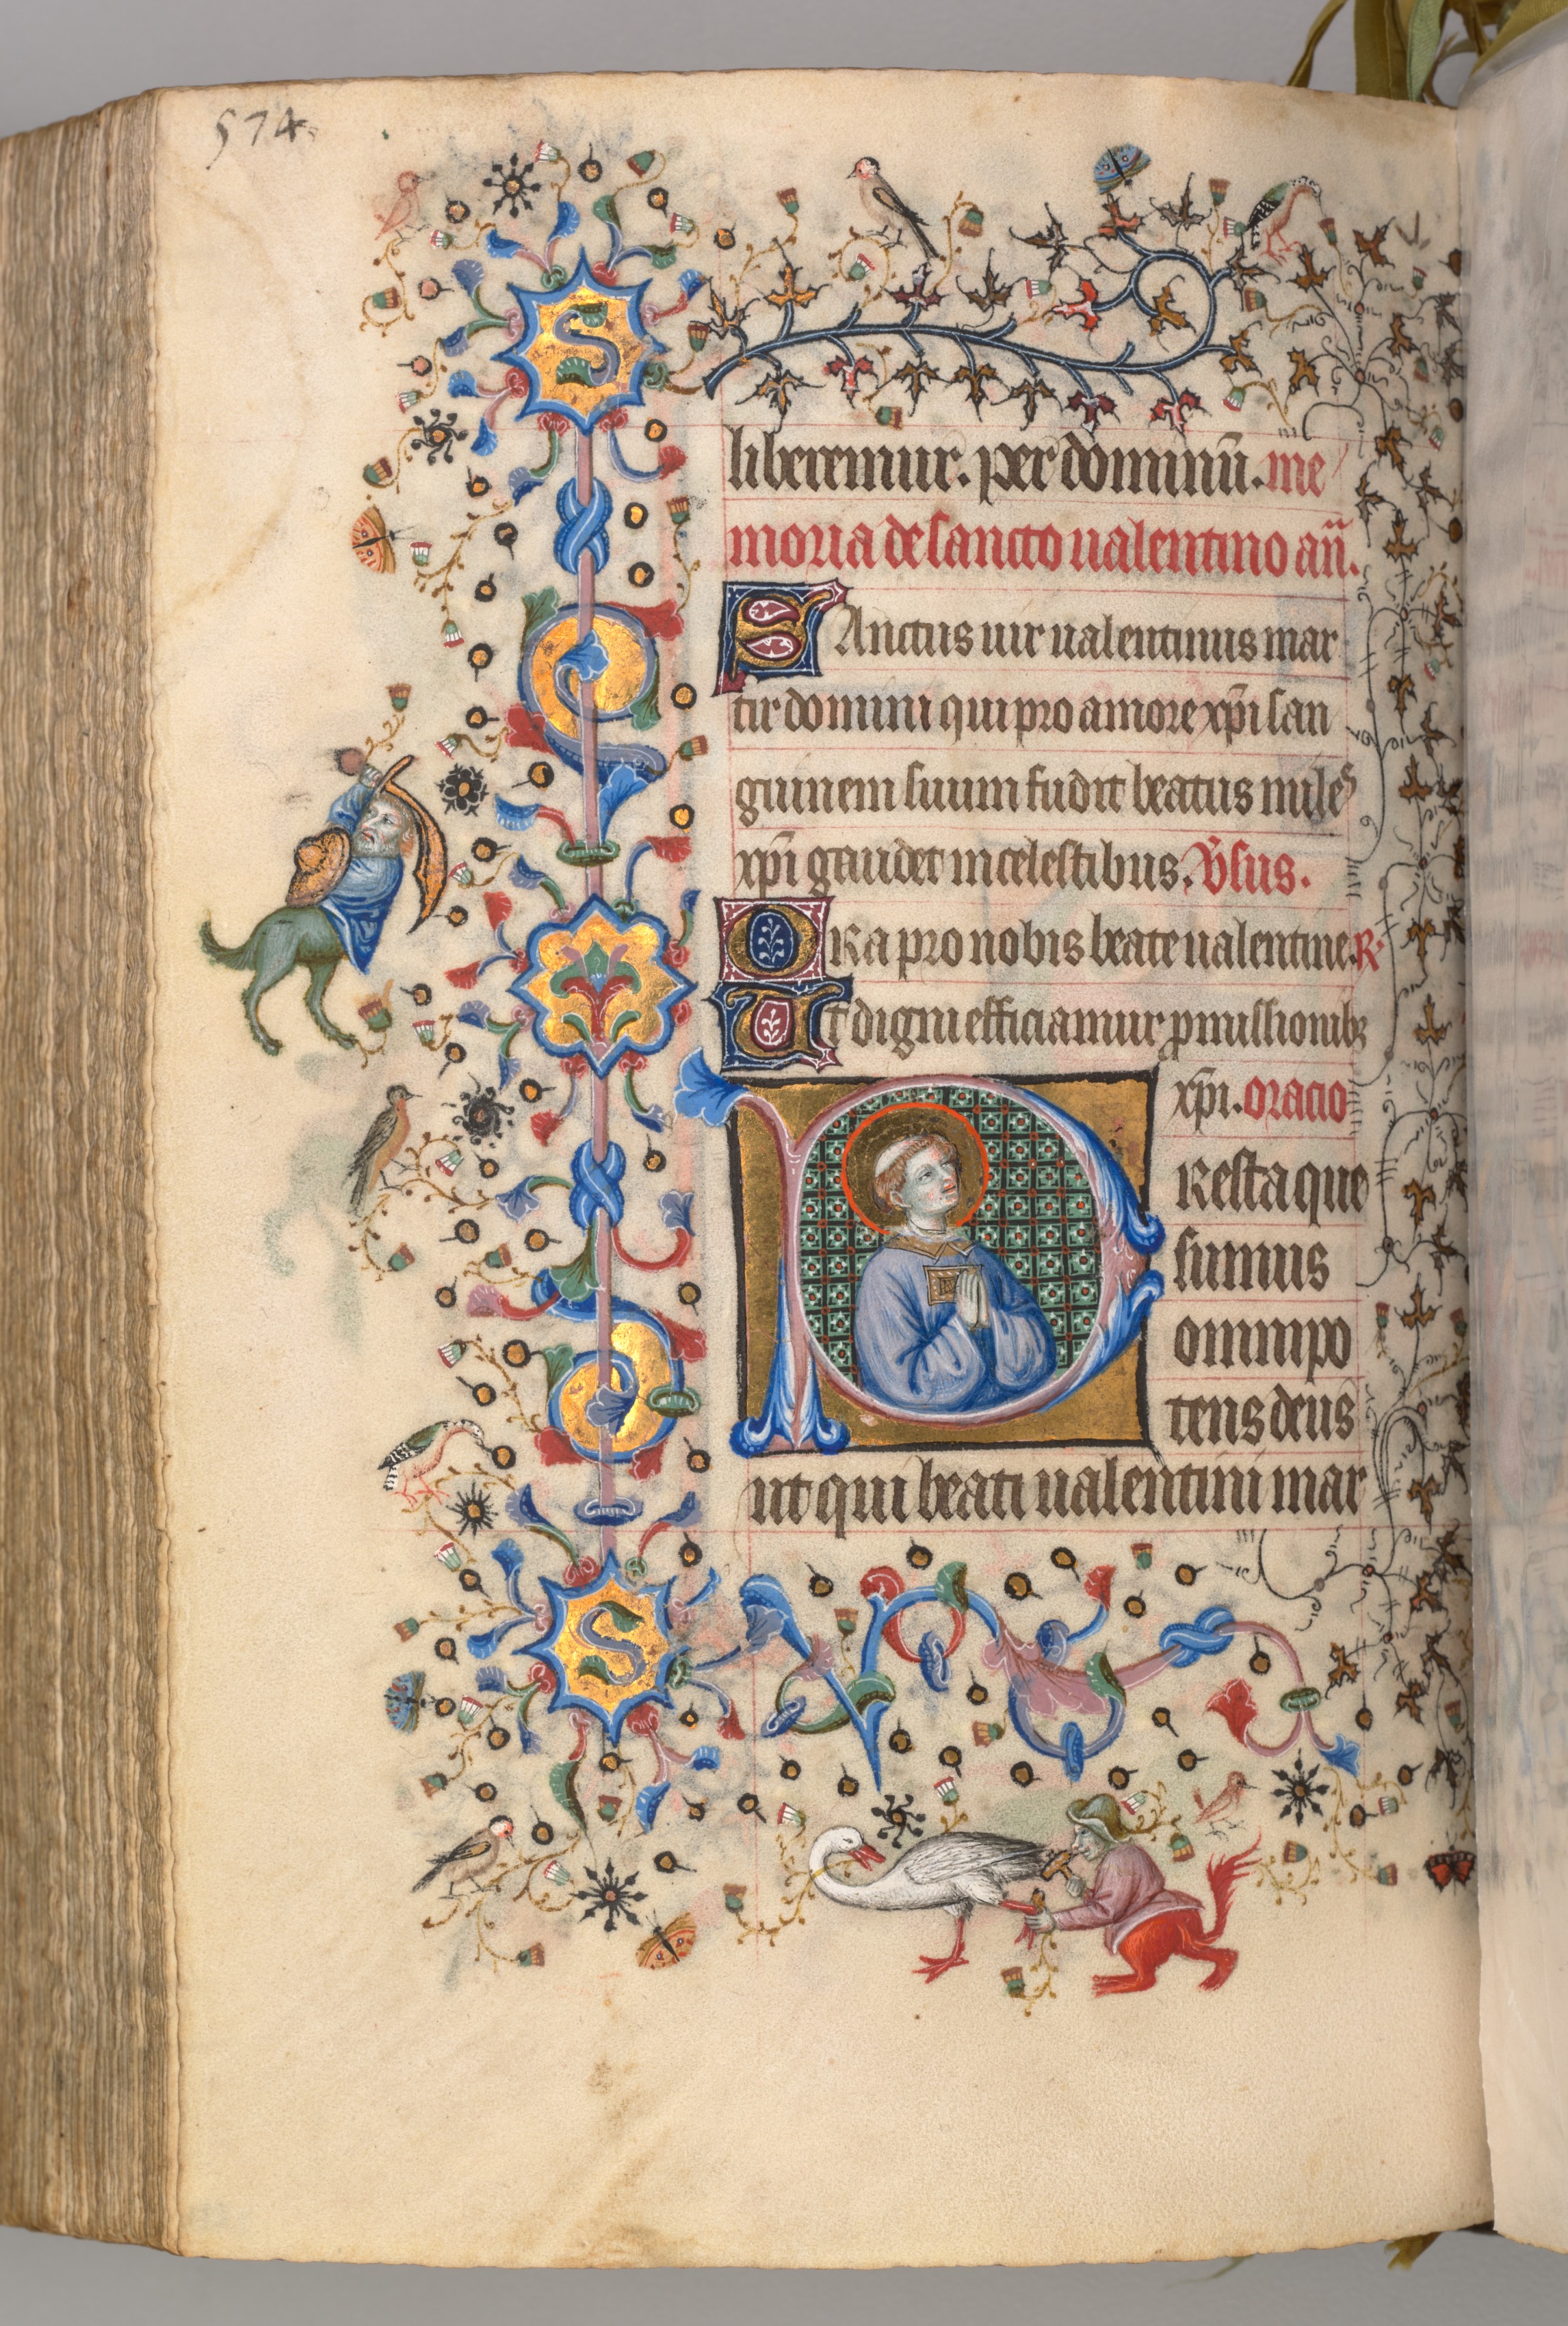 574.
liberemur. per dominū. me
moria de sancto ualentino añ.
SAnctus uir ualentinus mar
tir domini qui pro amore xp̄i san
guinem suum fudit beatus miles
xp̄i gaudet in celestibus. v̄sus.
ORa pro nobis beate ualentine. R.
Ut digni efficiamur ꝓmissionibꝫ
xp̄i. oracio
PResta que
sumus
omnipo
tens deus
ut qui beati ualentini mar